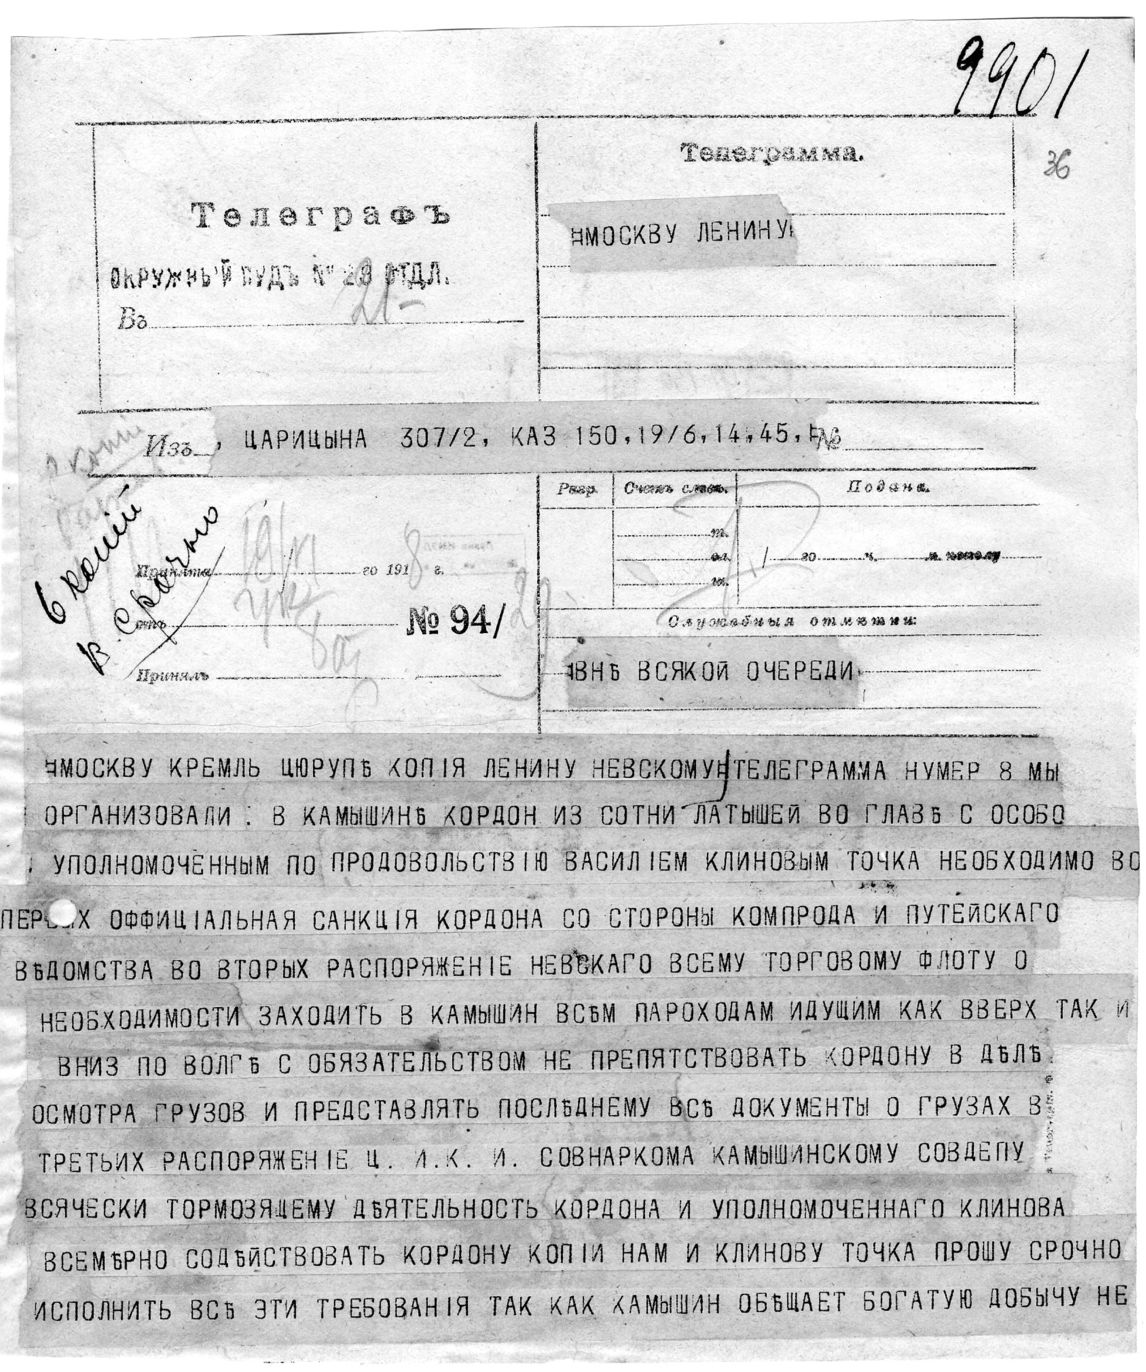 9901
36
Телеграмма.
Телеграфъ
МОСКВУ ЛЕНИНУ
ОКРУЖНЫЙ СУДЪ № 28 ОТДЛ.
21-
Въ
Изъ , ЦАРИЦЫНА 307/2, КАЗ 150,19/6,14,45, №
Разр. Счетъ словъ. Подана.
6 копій
В. Срочно
Принята 19/VI го 1918 г.
го ч. м. пополу
отъ № 94/
Служебныя отмѣтки:
Принялъ
ВНѢ ВСЯКОЙ ОЧЕРЕДИ
МОСКВУ КРЕМЛЬ ЦЮРУПѢ КОПІЯ ЛЕНИНУ НЕВСКОМУ ТЕЛЕГРАММА НУМЕР 8 МЫ
ОРГАНИЗОВАЛИ : В КАМЫШИНѢ КОРДОН ИЗ СОТНИ ЛАТЫШЕЙ ВО ГЛАВѢ С ОСОБО
УПОЛНОМОЧЕННЫМ ПО ПРОДОВОЛЬСТВІЮ ВАСИЛІЕМ КЛИНОВЫМ ТОЧКА НЕОБХОДИМО ВО
ПЕРВЫХ ОФФИЦІАЛЬНАЯ САНКЦІЯ КОРДОНА СО СТОРОНЫ КОМПРОДА И ПУТЕЙСКАГО
ВѢДОМСТВА ВО ВТОРЫХ РАСПОРЯЖЕНІЕ НЕВСКАГО ВСЕМУ ТОРГОВОМУ ФЛОТУ О
НЕОБХОДИМОСТИ ЗАХОДИТЬ В КАМЫШИН ВСѢМ ПАРОХОДАМ ИДУЩИМ КАК ВВЕРХ ТАК И
ВНИЗ ПО ВОЛГѢ С ОБЯЗАТЕЛЬСТВОМ НЕ ПРЕПЯТСТВОВАТЬ КОРДОНУ В ДѢЛѢ
ОСМОТРА ГРУЗОВ И ПРЕДСТАВЛЯТЬ ПОСЛѢДНЕМУ ВСѢ ДОКУМЕНТЫ О ГРУЗАХ В
ТРЕТЬИХ РАСПОРЯЖЕНІЕ Ц. И.К. И. СОВНАРКОМА КАМЫШИНСКОМУ СОВДЕПУ
ВСЯЧЕСКИ ТОРМОЗЯЩЕМУ ДѢЯТЕЛЬНОСТЬ КОРДОНА И УПОЛНОМОЧЕННАГО КЛИНОВА
ВСЕМѢРНО СОДѢЙСТВОВАТЬ КОРДОНУ КОПІИ НАМ И КЛИНОВУ ТОЧКА ПРОШУ СРОЧНО
ИСПОЛНИТЬ ВСѢ ЭТИ ТРЕБОВАНІЯ ТАК КАК КАМЫШИН ОБѢЩАЕТ БОГАТУЮ ДОБЫЧУ НЕ